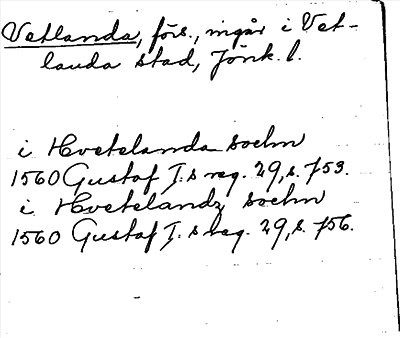 Vetlanda, förs., ingår i Vet-
landa stad, Jönk. l.
i Hvetelanda sochn
1560 Gustaf I.s reg. 29, s. 753.
i Hvetelandz sochn
1560 Gustaf I.s reg. 29, s. 756.